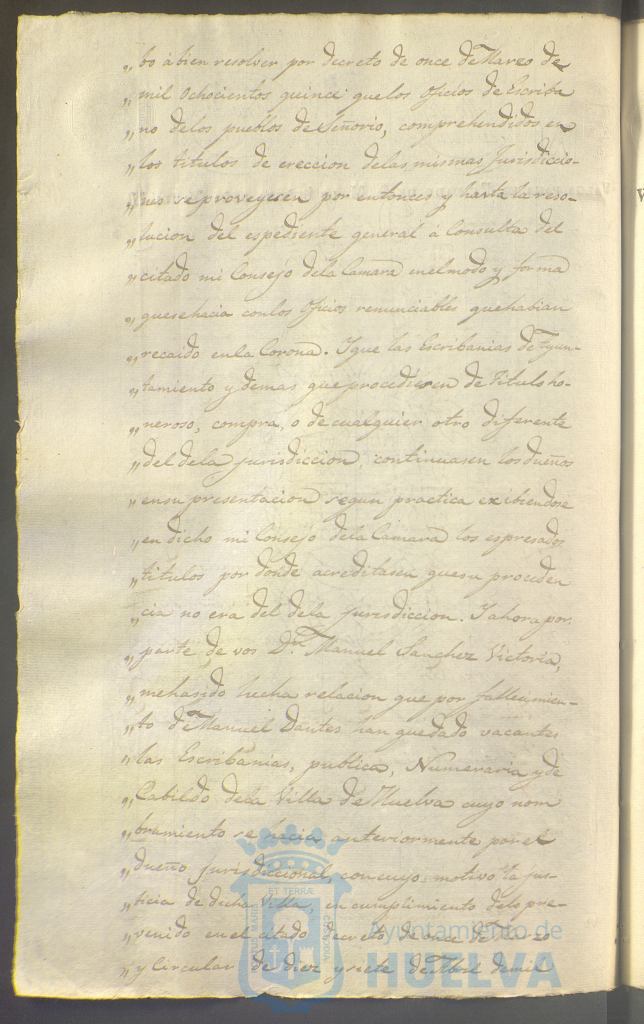 „bo á bien resolver por decreto de once de Marzo de
„mil Ochocientos quince que los Oficios de Escriba
„no delos pueblos de Señorio, comprehendidos en
„los titulos de ereccion delas mismas Jurisdiccio-
„nes se proveyesen por entonces y hasta la reso-
„lucion del espediente general á Consulta del
„citado mi Consejo dela Camara enel modo y forma
„quesehacia conlos Oficios renunciables quehabian
„recaido enla Corona. Y que las Escribanias de Ayun-
„tamiento y demas que procediesen de Titulo ho-
„neroso, compra, o de cualquier otro diferente
„del dela jurisdiccion, continuasen los dueños
„ensu presentacion segun practica exibiendose
„en dicho mi Consejo dela Camara los espresados
„titulos por donde acreditasen quesu proceden
„cia no era del dela jurisdiccion. Y ahora por
„parte de vos Dn. Manuel Sanchez Victoria,
„mehasido hecha relacion que por fallecimien-
„to de Manuel Dantes han quedado vacantes
„las Escribanias, publica, Numeraria y de
„Cabildo dela Villa de Huelva cuyo nom
„bramiento se hacia anteriormente por el
„dueño Jurisdiccional, concuyo motivo la jus-
„ticia de dicha Villa, en cumplimiento delo pre-
„venido enel citado decreto de once de Marzo
„y Circular de diez y siete de Abril de mil
ET TERRÆ
Ayuntamiento de
HUELVA